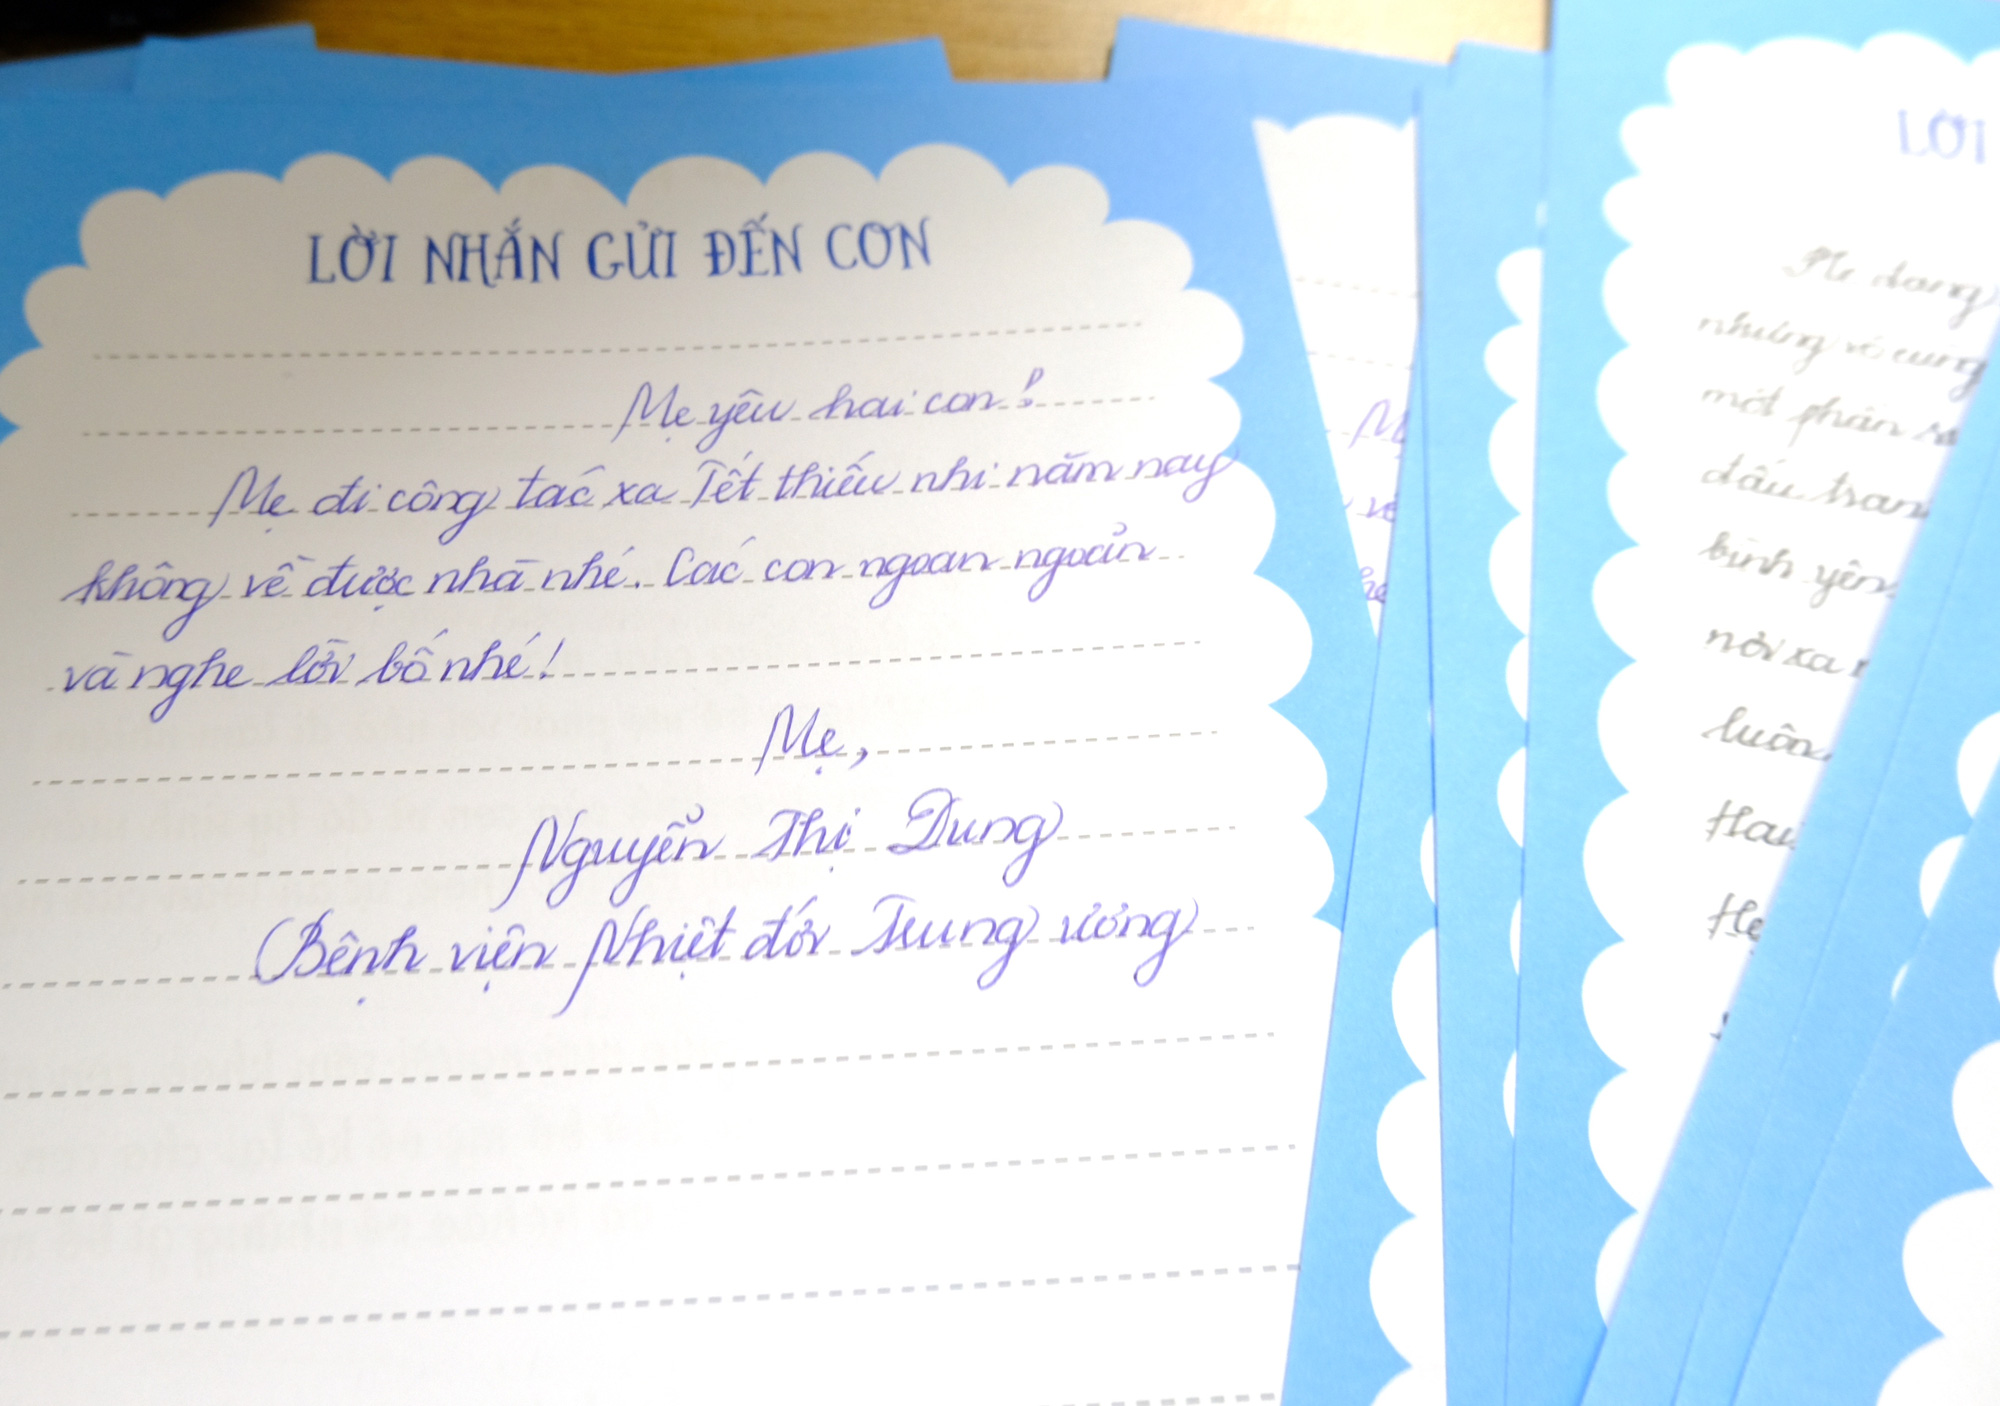 LỜI NHẮN GỬI ĐẾN CON
Mẹ yêu hai con!
Mẹ đi công tác xa Tết thiếu nhi năm nay
không về được nhà nhé. Các con ngoan ngoãn
và nghe lời bố nhé!
Mẹ,
Nguyễn Thị Dung
(Bệnh viện Nhiệt đới Trung ương)
LỜI
Mẹ đang
nhưng vô cùng
một phần
đấu tran
bình yên
nơi xa
luôn